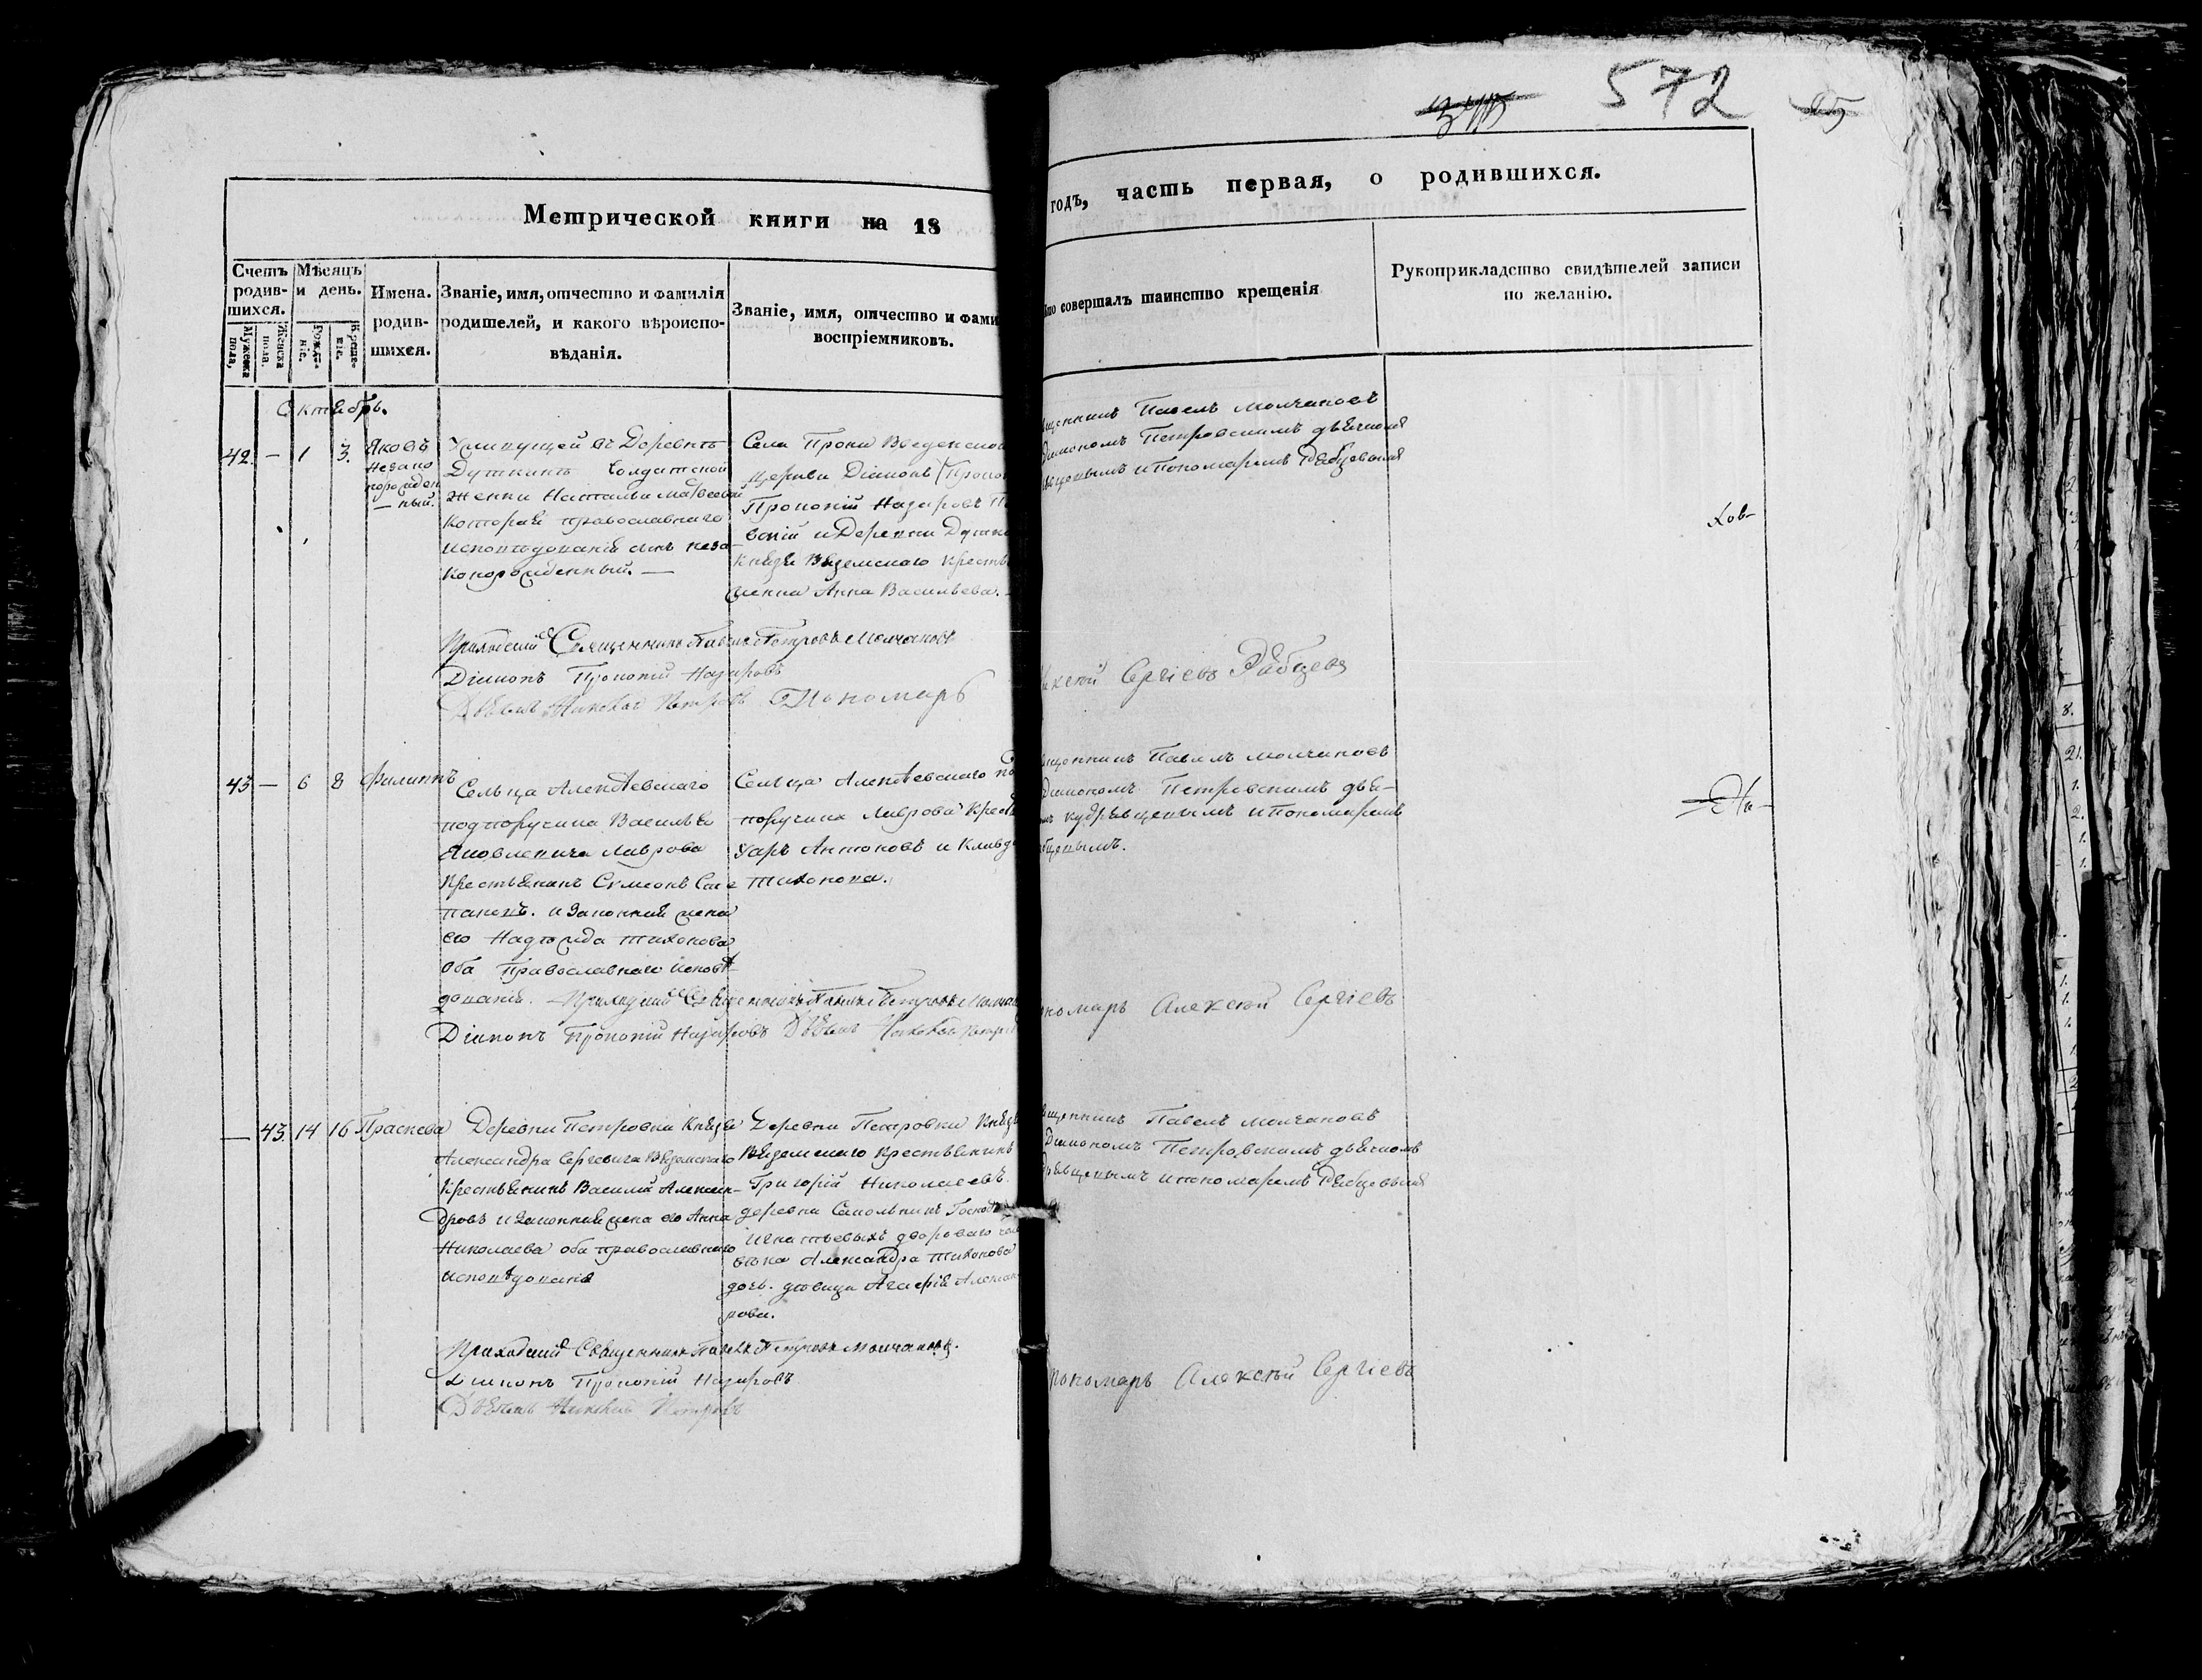 572
Метрической книги на 18
годъ, часть первая, о родившихся.
Счетъ родив-шихся.
Мужеска пола,
Женска пола.
Мѣсяцъ и день.
Рожде-ніе.
Креще-ніе.
Имена. родив-шихся.
Званіе, имя, отчество и фамилія
родителей, и какого вѣроиспо-
вѣданія.
Званіе, имя, отчество и фами
воспріемниковъ.
Кто совершалъ таинство крещенія
Рукоприкладство свидѣтелей записи
по желанію.
Октябрь.
42. — 1 3.
Яковъ
незако
норожден
ный.
въ Деревнѣ
Дуткинѣ Солдатской
женки Натальи Матвеевой
которая православнаго
исповѣданія сынъ неза
конорожденный. —
Села Введенской
церкви Діаконъ
Прокопій Назаровъ
и Деревни
Князя Вяземскаго крестья
Анна Васильева.
щенникъ Павелъ Молчановъ
Діакономъ Петровскимъ дьячкомъ
и Пономаремъ Рябцевымъ
Приходскій Священникъ Павелъ Петровъ Молчановъ
Діаконъ Прокопій Назаровъ
Дьячекъ Петровъ Пономарь
Сергіевъ Рябцевъ
43 — 6 8 Филиппъ
Сельца Алексѣевскаго
подпоручика Василья
Яковлевича Лаврова
крестьянинъ Симеонъ
и законная жена
его Надежда Тихонова
оба Православнаго исповѣ
данія.
Сельца Алексѣевскаго по
поручика Лаврова крест
Уаръ Антоновъ и Клавд
Тихонова.
щенникъ Павелъ Молчановъ
Діакономъ Петровскимъ дья-
Кудрявцевымъ и Пономаремъ
бцевымъ.
Приходскій Священникъ Павелъ Петровъ Молчан
Діаконъ Прокопій Назаровъ Дьячекъ
номарь Алексѣй Сергіевъ
— 43. 14 16 Праскева
Деревни Петровки Князя
Александра Сергеевича Вяземскаго
крестьянинъ Василій Алексан-
дровъ и законная жена его Анна
Николаева оба православнаго
исповѣданія
Деревни Петровки Князя
Вяземскаго крестьянинъ
Григорій Николаевъ.
деревни
Игнатьевыхъ двороваго чел
вѣка Александра Тихонова
дочь. дѣвица Агафія Алексан
рова.
щенникъ Павелъ Молчановъ
Діакономъ Петровскимъ дьячкомъ
вцевымъ и пономаремъ Рябцевымъ
Приходскій Священникъ Павелъ Петровъ Молчановъ.
Діаконъ Прокопій Назаровъ
Дьячекъ Петровъ
Пономарь Алексѣй Сергіевъ